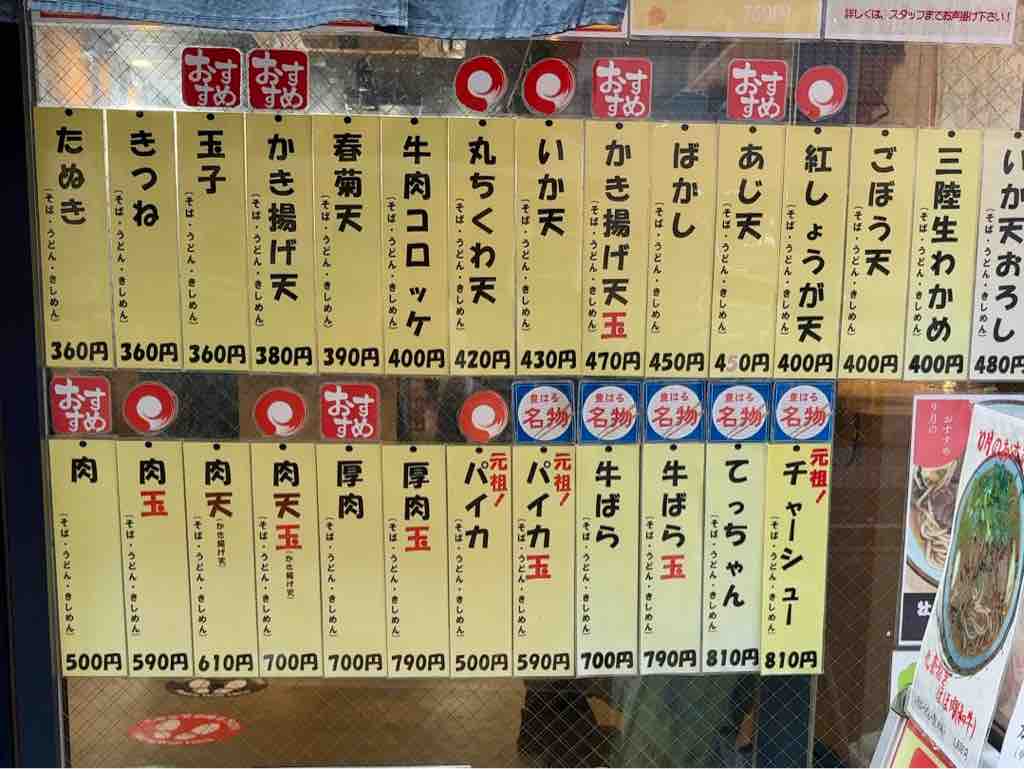 760円
詳しくは、スタッフまでお声掛け下さい!
おすすめ
おすすめ
おすすめ
おすすめ
たぬき
(そば・うどん・きしめん)
360円
きつね
(そば・うどん・きしめん)
360円
玉子
(そば・うどん・きしめん)
360円
かき揚げ天
(そば・うどん・きしめん)
380円
春菊天
(そば・うどん・きしめん)
390円
牛肉コロッケ
(そば・うどん・きしめん)
400円
丸ちくわ天
(そば・うどん・きしめん)
420円
いか天
(そば・うどん・きしめん)
430円
かき揚げ天玉
(そば・うどん・きしめん)
470円
ばかし
(そば・うどん・きしめん)
450円
あじ天
(そば・うどん・きしめん)
450円
紅しょうが天
(そば・うどん・きしめん)
400円
ごぼう天
(そば・うどん・きしめん)
400円
三陸生わかめ
(そば・うどん・きしめん)
400円
いか天おろし
(そば・うどん・きしめん)
480円
おすすめ
おすすめ
豊はる
名物
豊はる
名物
豊はる
名物
豊はる
名物
豊はる
名物
肉
(そば・うどん・きしめん)
500円
肉玉
(そば・うどん・きしめん)
590円
肉天(かき揚げ天)
(そば・うどん・きしめん)
610円
肉天玉(かき揚げ天)
(そば・うどん・きしめん)
700円
厚肉
(そば・うどん・きしめん)
700円
厚肉玉
(そば・うどん・きしめん)
790円
元祖!
パイカ
(そば・うどん・きしめん)
500円
元祖!
パイカ玉
(そば・うどん・きしめん)
590円
牛ばら
(そば・うどん・きしめん)
700円
牛ばら玉
(そば・うどん・きしめん)
790円
てっちゃん
(そば・うどん・きしめん)
810円
元祖!
チャーシュー
(そば・うどん・きしめん)
810円
9月の
おすすめ